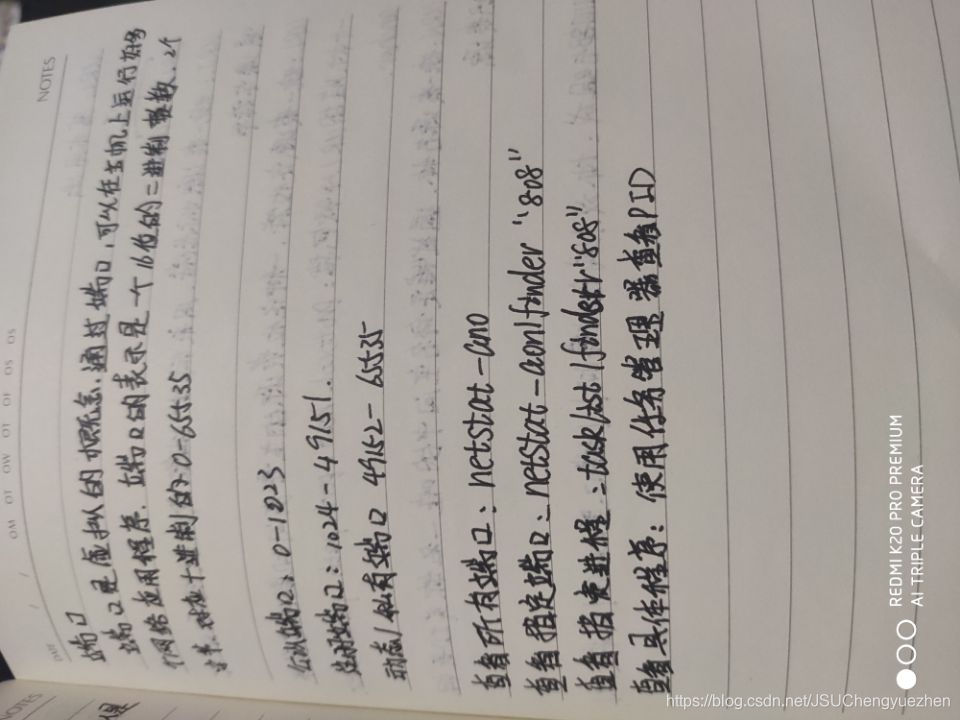 NOTES
DATE
OM OT OW OT OF OS OS
端口
端口是虚拟的概念,通过端口,可以在主机上运行好多
个网络应用程序.端口的表示是一个16位的二进制整数.2个
字节.对应十进制的0-65535
公认端口:0-1023
注册端口:1024-49151.
动态/私有端口 49152-65535
查看所有端口:netstat-ano
查看指定端口:netstat-aon|finder "808"
查看指定进程:tasklist|findstr"808"
查看具体程序:使用任务管理器查看PID
NOTES
REDMI K20 PRO PREMIUM
AI TRIPLE CAMERA
https://blog.csdn.net/JSUChengyuezhen